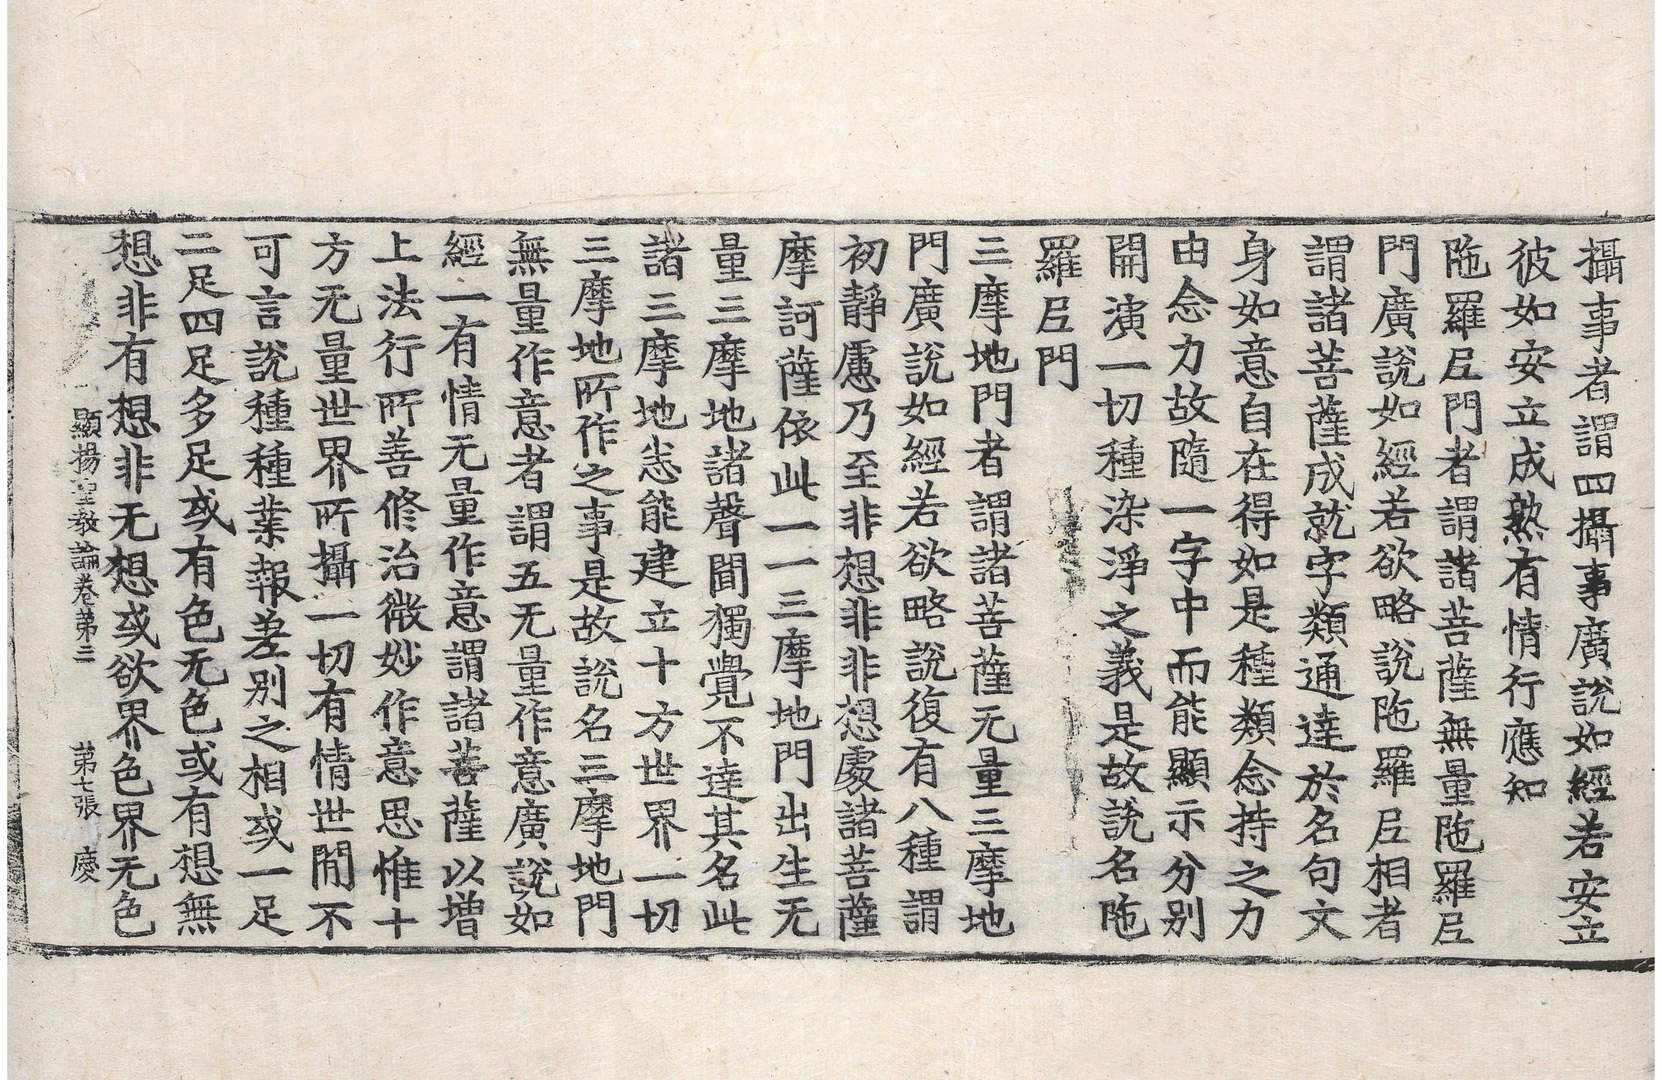 攝事者謂四攝事廣說如經若安立
彼如安立成熟有情行應知
陁羅尼門者謂諸菩薩無量陁羅尼
門廣說如經若欲略說陁羅尼相者
謂諸菩薩成就字類通達於名句文
身如意自在得如是種類念持之力
由念力故隨一字中而能顯示分別
開演一切種染淨之義是故說名陁
羅尼門
三摩地門者謂諸菩薩无量三摩地
門廣說如經若欲略說復有八種謂
初靜慮乃至非想非非想處諸菩薩
摩訶薩依此一一三摩地門出生无
量三摩地諸聲聞獨覺不達其名此
諸三摩地悉能建立十方世界一切
三摩地所作之事是故說名三摩地門
無量作意者謂五无量作意廣說如
經一有情无量作意謂諸菩薩以增
上法行所善修治微妙作意思惟十
方无量世界所攝一切有情世間不
可言說種種業報差別之相或一足
二足四足多足或有色无色或有想無
想非有想非无想或欲界色界无色
顯揚聖教論卷第三 第七張 慶